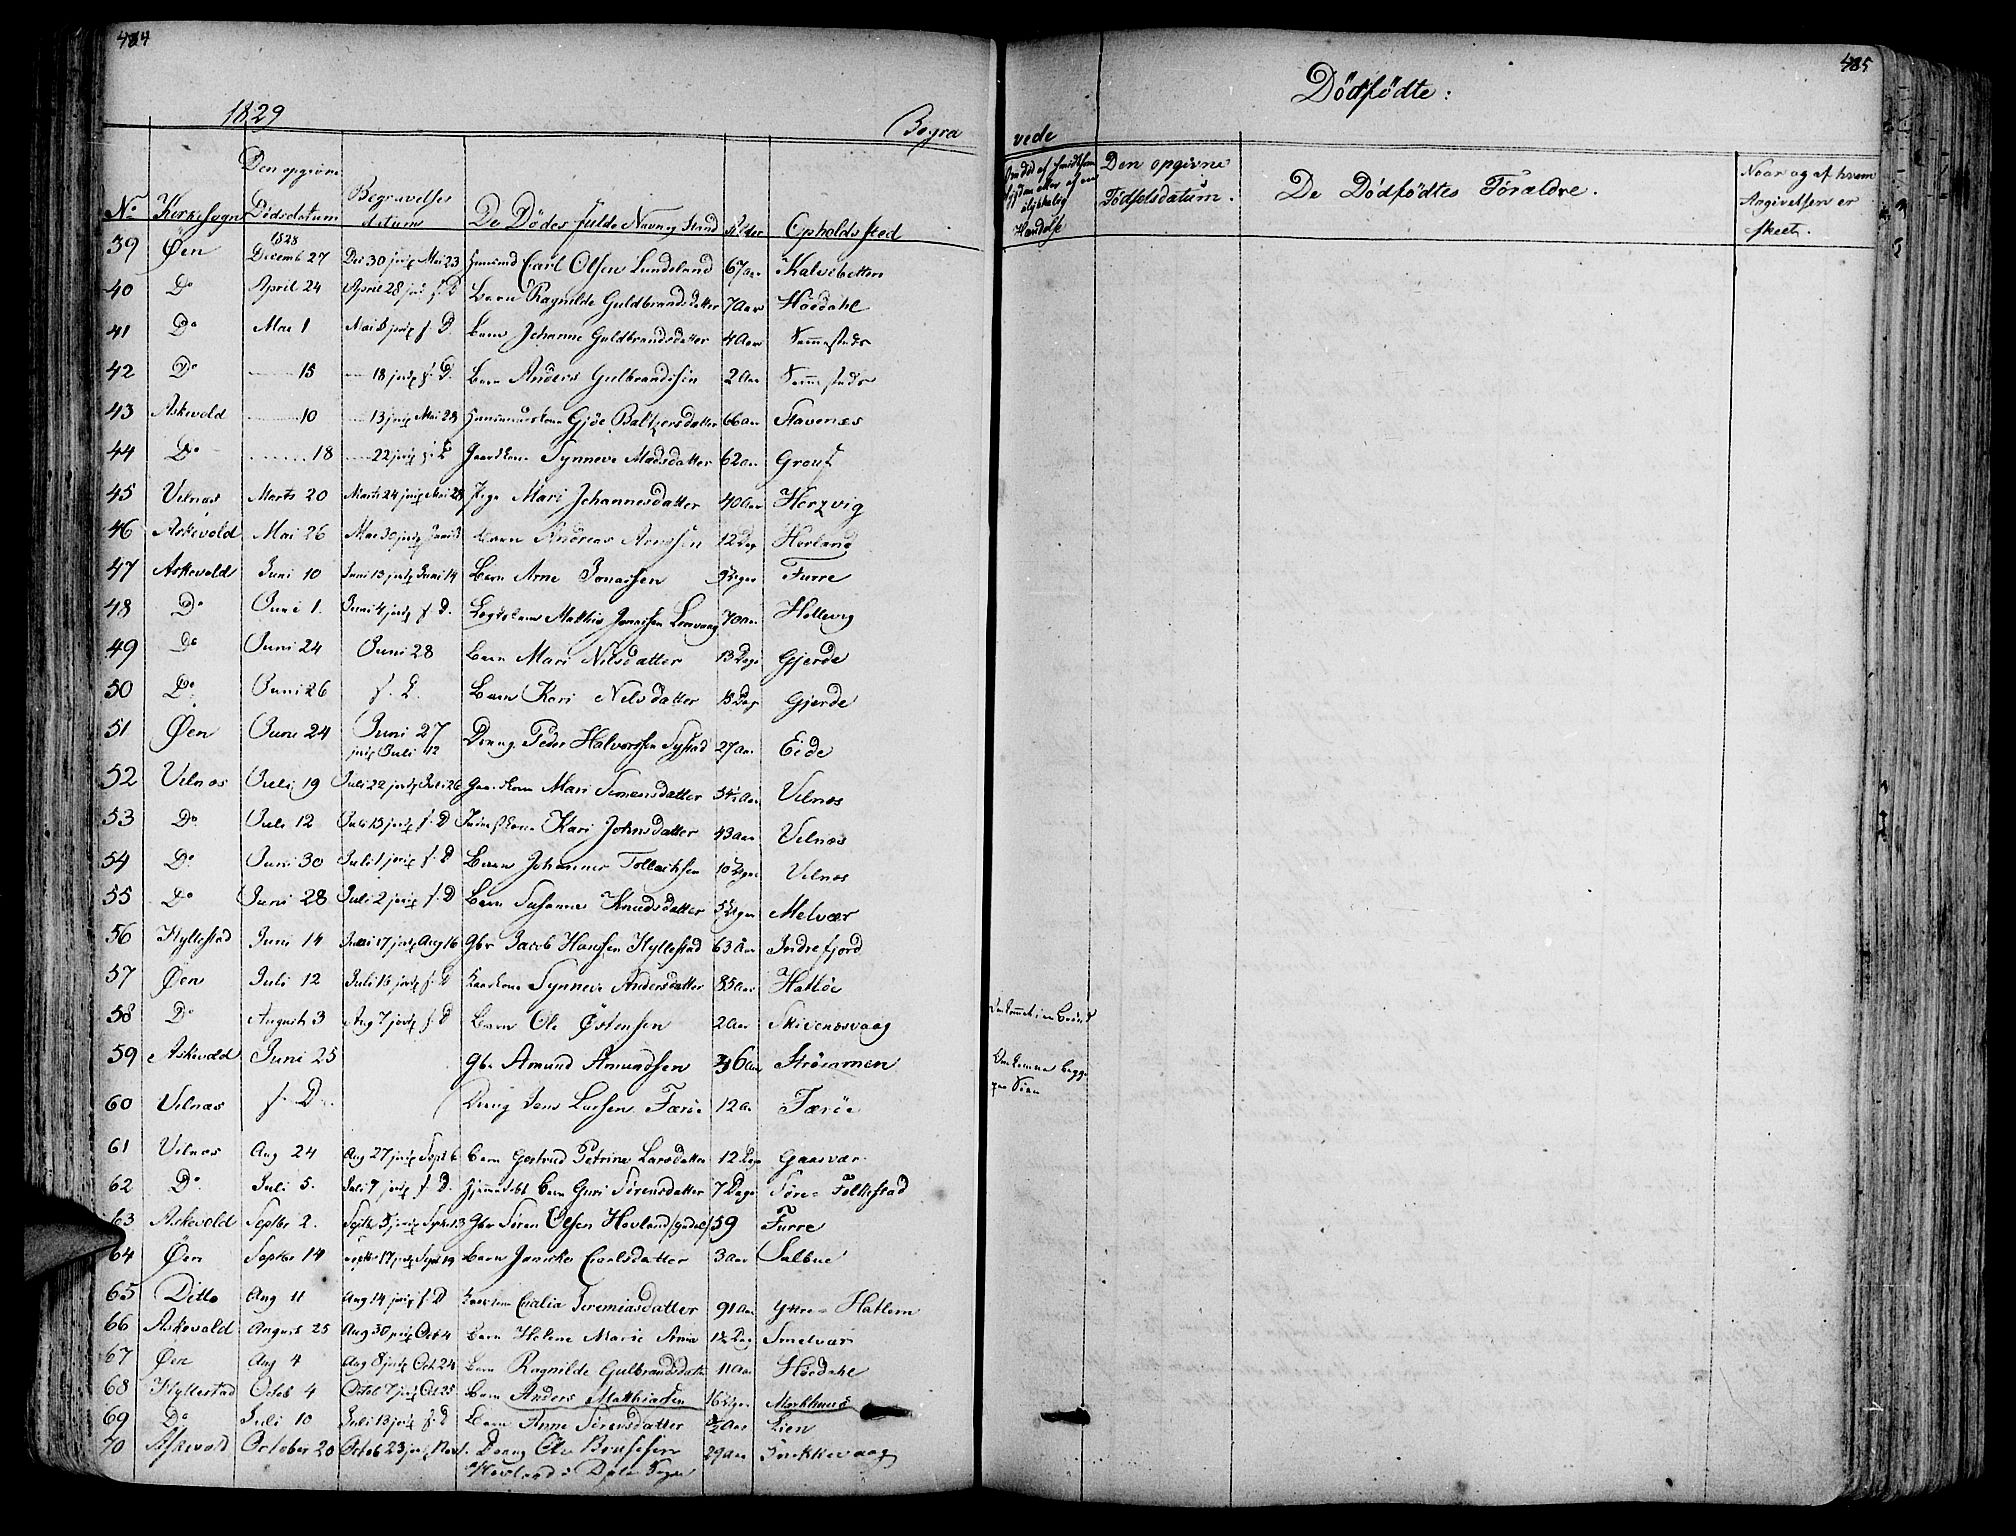 484
1829
Begra
No
Kirkesogn
Den opgivne Dødsdatum
Begravelses datum
De Dødes fulde Navn og Stand
Alder
Opholdssted
39 Øen 1828 Decemb 27 Dec 30 jordf Mai 23 Huusmd Carl Olsen Lundeland 67 Aar Kalvebetten
40 Do April 24 April 28 jord f. D. Barn Ragnilde Guldbrandsdatter 7 Aar Høedahl
41 Do Mai 1 Mai 5 jordf f. D. Barn Johanne Guldbrandsdatter 4 Aar Sammesteds
42 Do 15 18 jordf f. D. Barn Anders Gulbrandssen 2 Aar Sammesteds
43 Askevold 10 13 jordf Mai 28 Huusmandskone Gjøe Baltzersdatter 66 Aar Stavenæs
44 Do 18 22 jordf f. D. Gaardkone Synneve Madsdatter 62 Aar
45 Vilnæs Marts 20 Marts 24 jordf Mai 28 Pige Mari Johannesdatter 40 Aar Herzvig
46 Askevold Mai 26 Mai 30 jordf Barn Andreas Arnesen 12 Dag Herland
47 Askevold Juni 10 Juni 13 jordf Juni 14 Barn Arne Jonassen Furre
48 Do Juni 1. Juni 4 jordf f. D. Mathis Jonasen 70 Aar Hellevig
49 Do Juni 24 Juni 28 Barn Mari Nilsdatter 13 Dage Gjerde
50 Do Juni 26 f. D. Barn Kari Nilsdatter 15 Dag Gjerde
51 Øen Juni 24 Juni 27 jordf Juli 12 Dreng Peder Halvorssen Systad 27 Aar Eide
52 Vilnæs Juli 19 Juli 22 jordf Juli 26 Gaardkone Mari Simensdatter Vilnæs
53 Do Juli 12 Juli 15 jordf f. D Kari Johnsdatter 43 Aar Vilnæs
54 Do Juni 30 Juli 1 jordf f. D Barn Johannes Tollachsen Vilnæs
55 Do Juni 28 Juli 2 jordf f. D Barn Susanna Knudsdatter Melvær
56 Hyllestad Juni 14 Juni 17 jordf Aug 16 Gbr Jacob Hanssen Hyllestad 63 Aar Indrefjord
57 Øen Juli 12 Juli 15 jordf f. D Kaarkone Synneve Andersdatter 85 Aar Hatløe
58 Do August 3 Aug 7 jordf f. D Barn Ole Østensen 2 Aar Skivenæsvaag
59 Askevold Juni 25 Gbr Amund Amundsen 36 Aar Strömmen
60 Vilnæs f. D. Dreng Jens Larsen Færöe 12 Aar Færöe
61 Vilnæs Aug 24 Aug 27 jordf Sept 6 Barn Gertrud Petrine Larsdatter 12 Dage Gaasvær
62 Do Juli 5. Juli 7 jordf f. D. Hjemmedøbt Barn Guri Sørensdatter 7 Dage Søre Folkestad
63 Askevold Septbr 2. Septbr 5 jordf Sept 13 Gbr Søren Olsen Hovland 59 Furre
64 Øen Septbr 14 Septbr 17 jordf Sept 19 Barn Jenicke Carlsdatter 3 Aar Salbue
65 Ditto Aug 11 Aug 14 jordf f. D Kaarkone Eralia Jeremiasdatter 91 Aar Yttre Hatlem
66 Askevold August 25 Aug 30 jordf Oct 4 Barn Helene Marie Arne Smelvær
67 Øen Aug 4 Aug 8 jordf Oct 24 Barn Ragnilde Gulbrandsdatr 11 Aar Høedahl
68 Hyllestad Octob 4 Octob 7 jordf Oct 25 Barn Anders Matthiassen 16 Uger Merkhuus
69 Do Juli 10 Juli 13 jordf f. D Barn Anne Sørensdatter Lien
70 Askevold October 20 Octob 23 jordf Nov 1. Dreng Ole 29 Aar
Hovland i Dale Sogn
485
Dødfødte:
vede
Om død af
Hændelse
Den opgivne Fødselsdatum.
De Dødfødtes Forældre.
Naar og af hvem Angivelsen er skeet.
Omkommet i en Brönd
Omkomne begge paa Søen